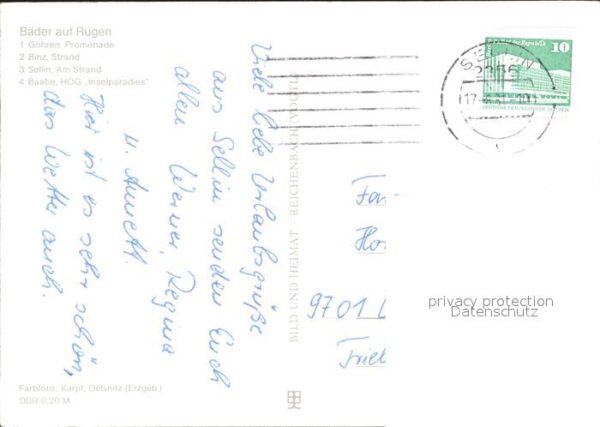 Bäder auf Rügen
1 Göhren, Promenade
2 Binz, Strand
3 Sellin, Am Strand
4 Baabe, HOG „Inselparadies"
Viele liebe Urlaubsgrüße
aus Sellin senden Euch
allen Werner, Regina
u. Annett.
Hier ist es sehr schön,
das Wetter auch.
BILD UND HEIMAT · REICHENBACH (VOGTL)
10
SELLIN
2356
Fam
9701
privacy protection
Datenschutz
Farbfoto: Karpf, Oelsnitz (Erzgeb.)
DDR 0,20 M